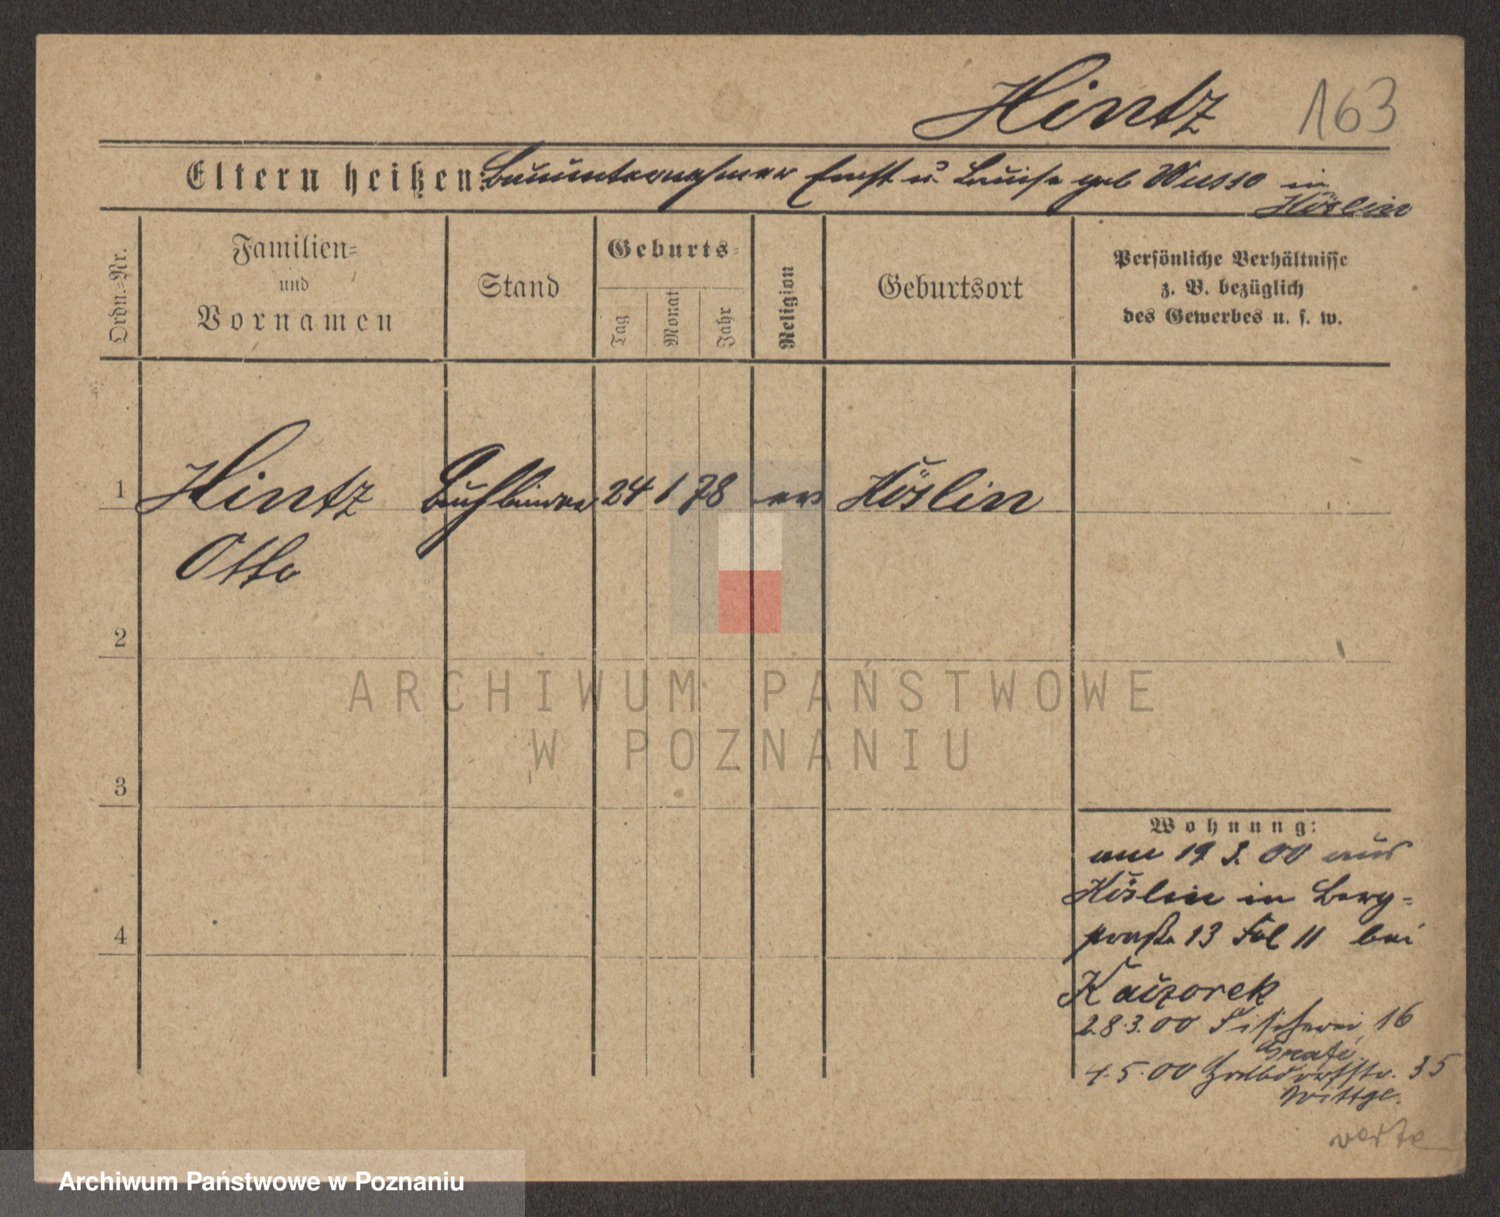 Hintz 163
Eltern heißen: Bauunternehmer Ernst u. Louise geb Wusso in
Köslin
Ordn.-Nr.
Familien- und Vornamen
Stand
Geburts-
Tag Monat Jahr
Religion
Geburtsort
Persönliche Verhältnisse
z. B. bezüglich
des Gewerbes u. s. w.
1 Hintz Buchbinder 24 1 78 ev Köslin
Otto
2
ARCHIWUM PAŃSTWOWE
W POZNANIU
3
4
Wohnung:
am 19 3. 00 aus
Köslin in Berg-
straße 13 11 bei
Kaczorek
28.3.00 Fischerei 16
4.5.00 35
Wittge.
verte
Archiwum Państwowe w Poznaniu